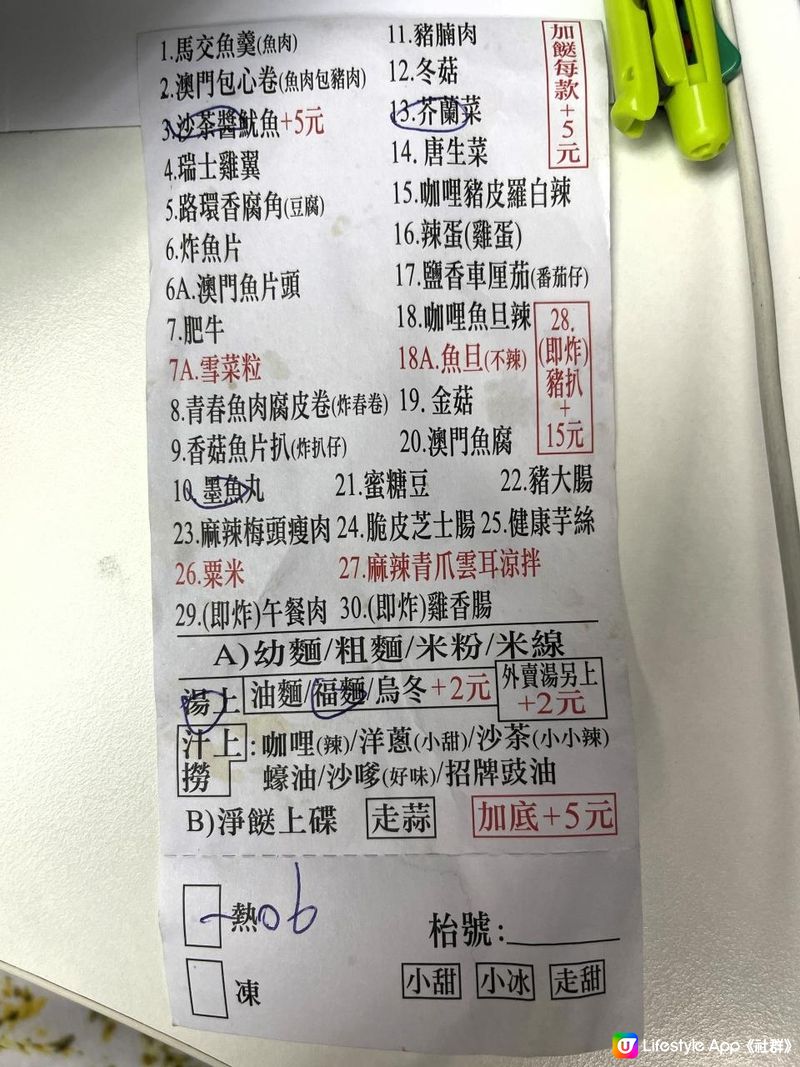 1.馬交魚羹(魚肉)
2.澳門包心卷(魚肉包豬肉)
3.沙茶醬魷魚+5元
4.瑞士雞翼
5.路環香腐角(豆腐)
6.炸魚片
6A.澳門魚片頭
7.肥牛
7A.雪菜粒
8.青春魚肉腐皮卷(炸春卷)
9.香菇魚片扒(炸扒仔)
10.墨魚丸
11.豬腩肉
12.冬菇
13.芥蘭菜
14.唐生菜
15.咖哩豬皮羅白辣
16.辣蛋(雞蛋)
17.鹽香車厘茄(番茄仔)
18.咖哩魚旦辣
18A.魚旦(不辣)
19.金菇
20.澳門魚腐
加餸每款+5元
28.
(即炸)
豬扒
+
15元
21.蜜糖豆 22.豬大腸
23.麻辣梅頭瘦肉 24.脆皮芝士腸 25.健康芋絲
26.粟米 27.麻辣青爪雲耳涼拌
29.(即炸)午餐肉 30.(即炸)雞香腸
A)幼麵/粗麵/米粉/米線
湯上 油麵/福麵/烏冬+2元
外賣湯另上
+2元
汁上:咖哩(辣)/洋蔥(小甜)/沙茶(小小辣)
撈 蠔油/沙嗲(好味)/招牌豉油
B)淨餸上碟 走蒜 加底+5元
熱06
枱號:
凍 小甜 小冰 走甜
U Lifestyle App《社群》